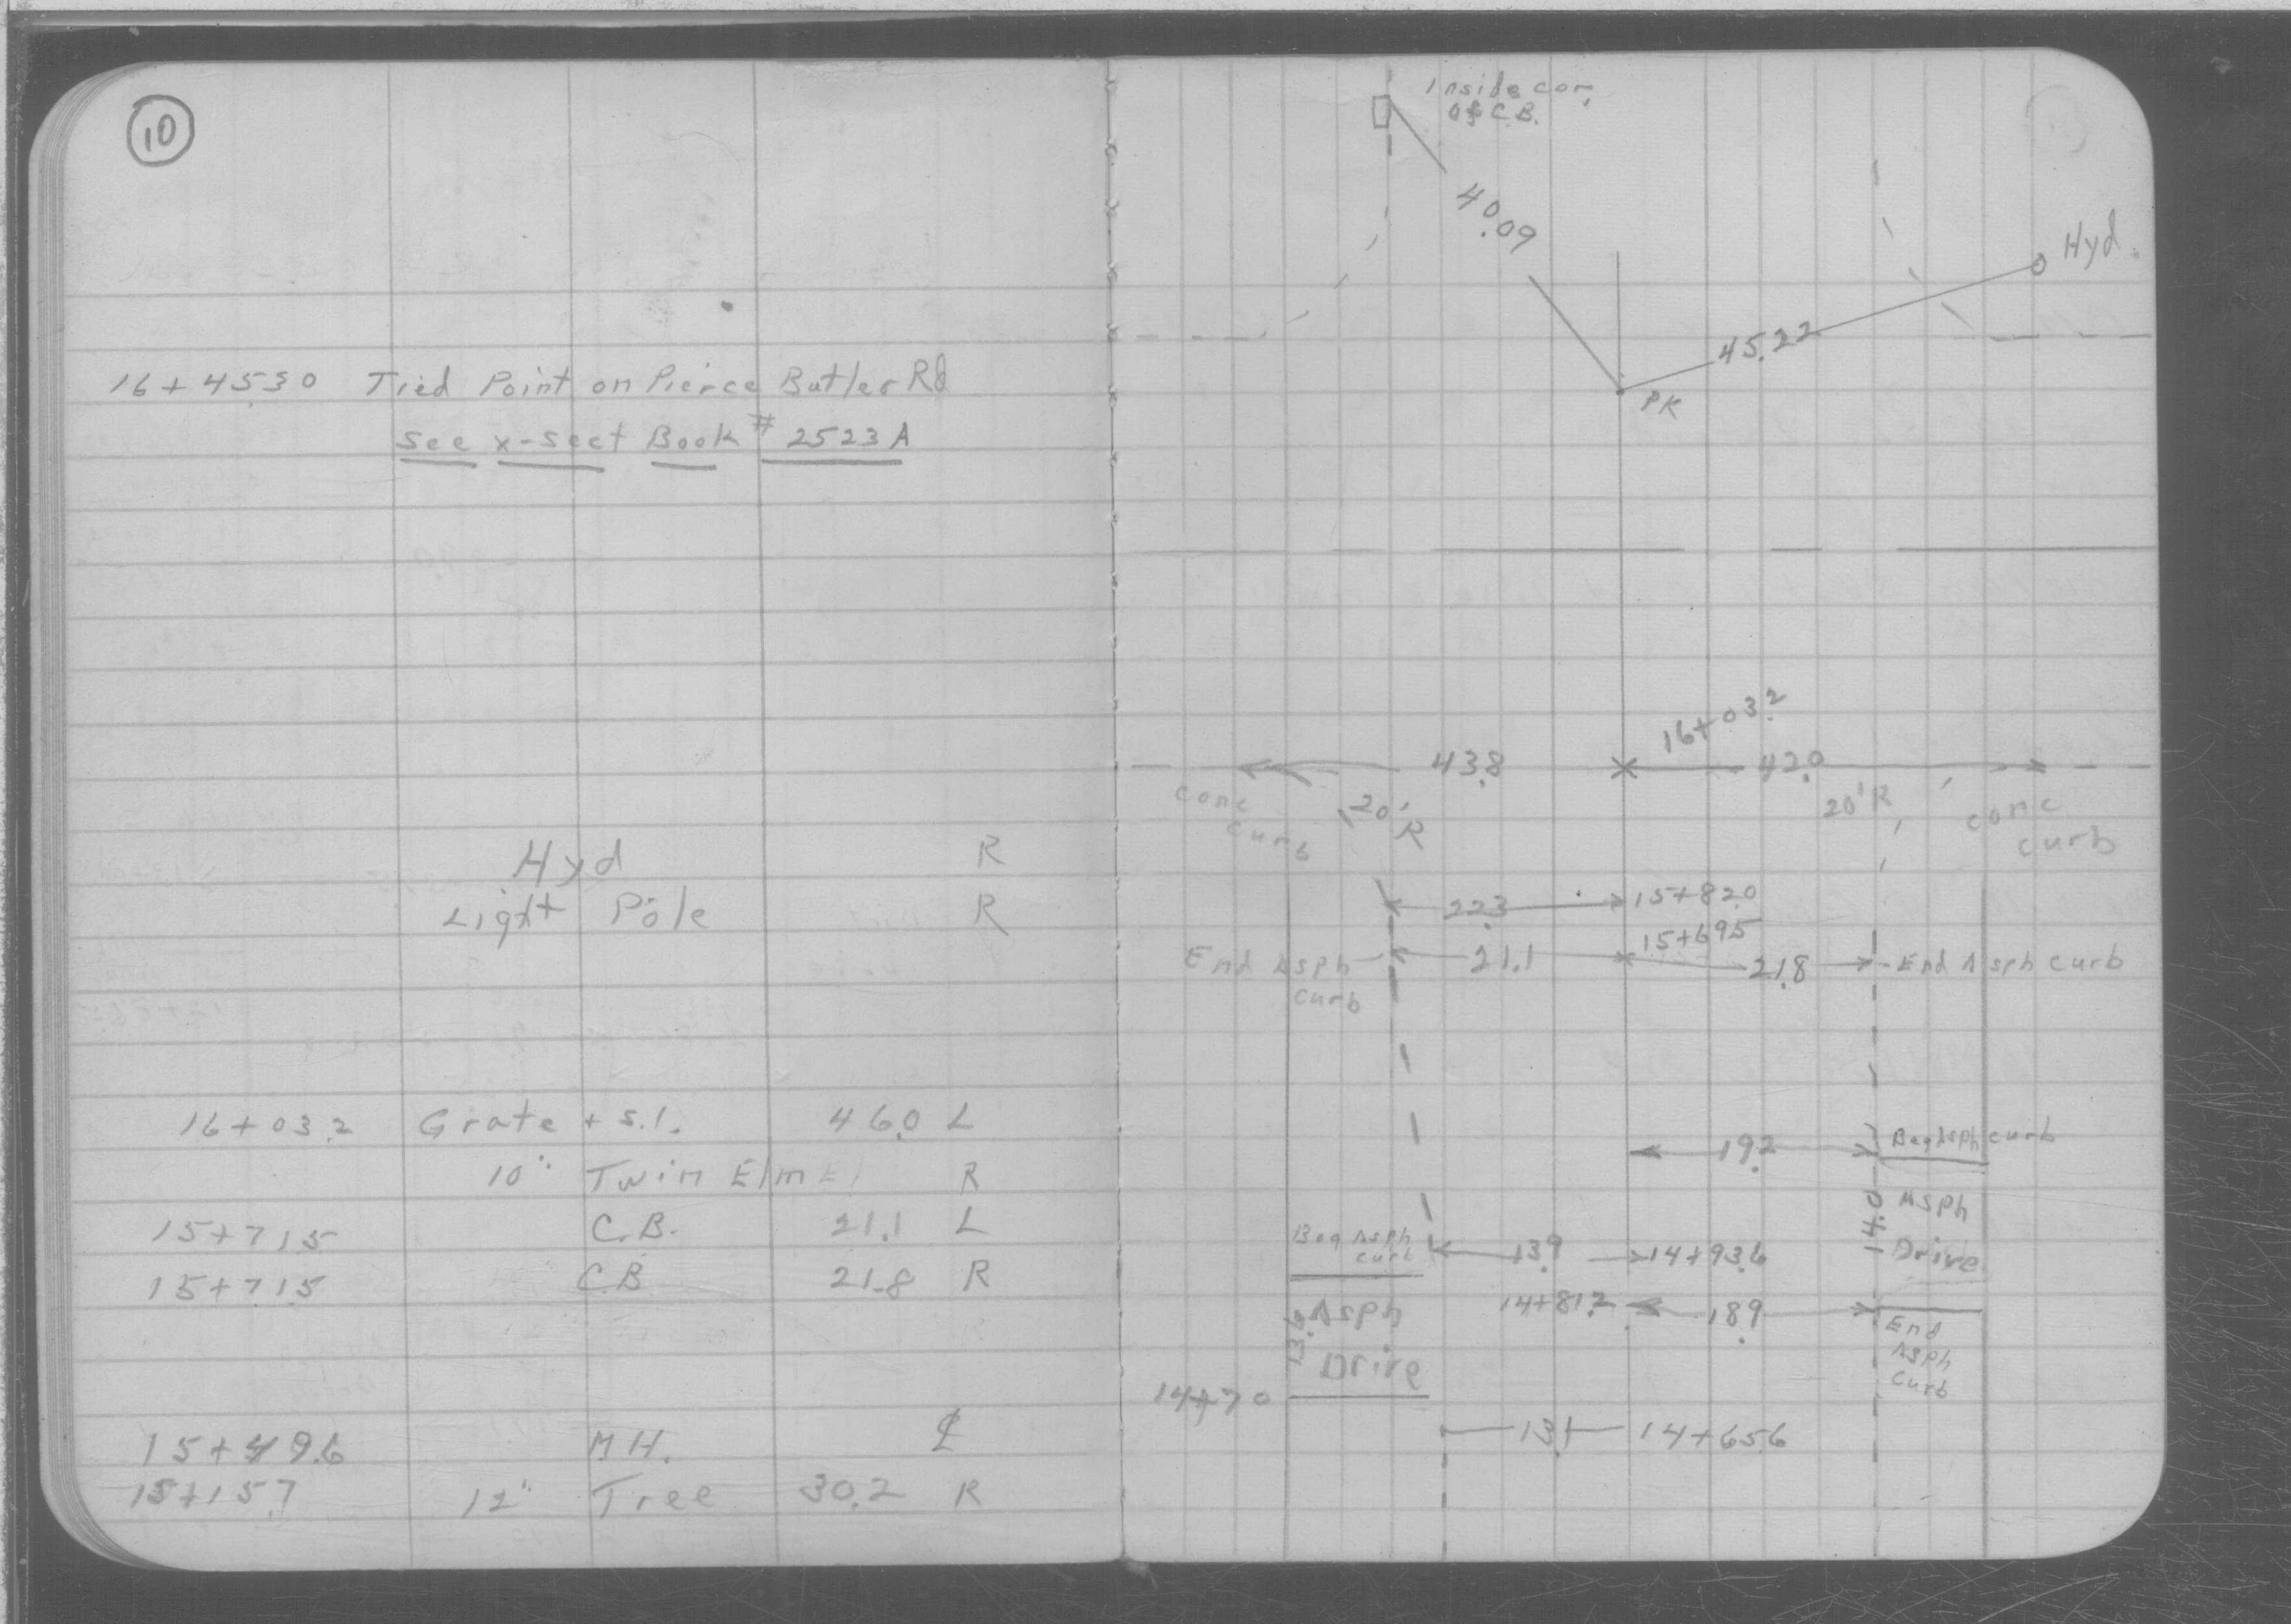 10
16+45.30 Tied Point on Pierce Butler Rd
See x-sect Book # 2523A
Hyd R
Light Pole R
16+03.2 Grate + S.I. 46.0 L
10" Twin Elm R
15+71.5 C.B. 21.1 L
15+71.5 CB 21.8 R
15+49.6 M.H. ℄
15+15.7 12" Tree 30.2 R
Inside cor.
of C.B.
40.09
Hyd.
45.22
PK
16+03.2
43.8 42.0
conc curb 20' R 20' R conc curb
22.3 15+82.0
15+69.5
End Asph curb 21.1 21.8 End Asph curb
19.2 Beg Asph curb
14.0 Asph Drive
Beg Asph curb 13.9 14+93.6
14+81.2 18.9 End Asph Curb
13.6 Asph Drive
14+70
13.1 14+65.6